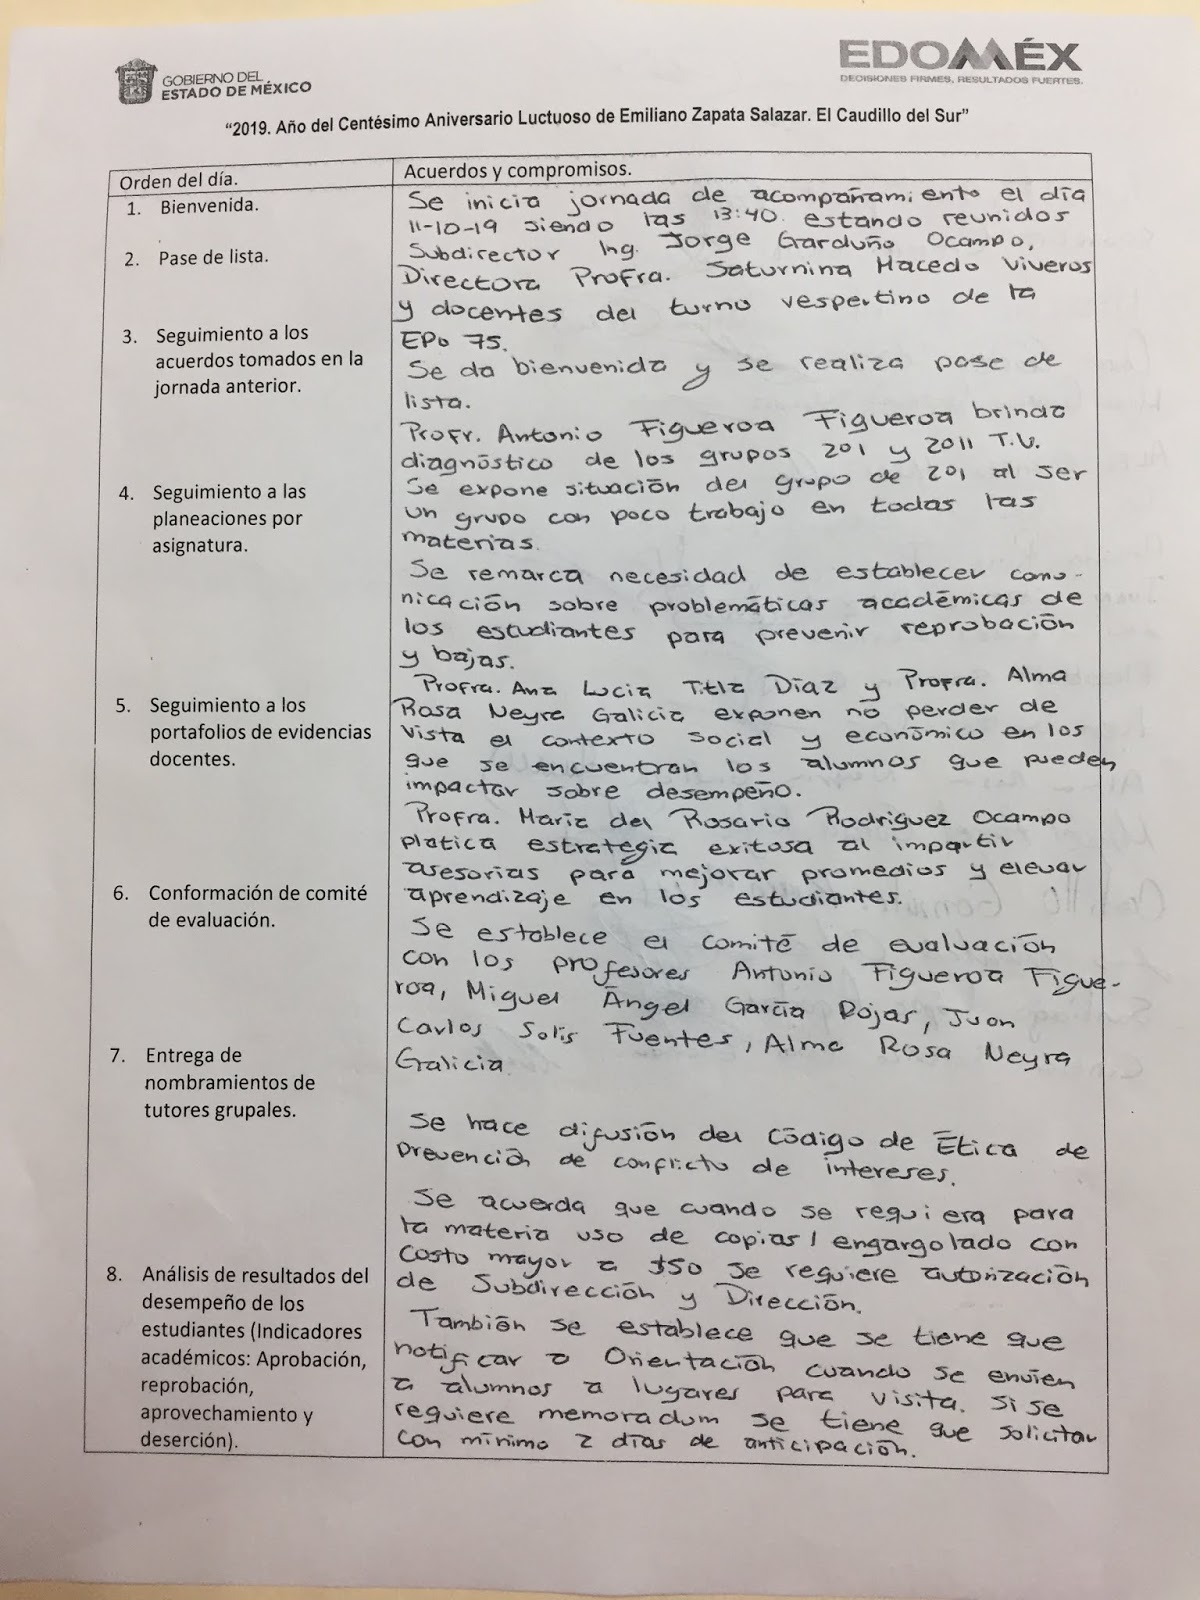 GOBIERNO DEL
ESTADO DE MÉXICO
EDOMÉX
DECISIONES FIRMES, RESULTADOS FUERTES.
“2019. Año del Centésimo Aniversario Luctuoso de Emiliano Zapata Salazar. El Caudillo del Sur”
Orden del día.
1. Bienvenida.
2. Pase de lista.
3. Seguimiento a los
acuerdos tomados en la
jornada anterior.
4. Seguimiento a las
planeaciones por
asignatura.
5. Seguimiento a los
portafolios de evidencias
docentes.
6. Conformación de comité
de evaluación.
7. Entrega de
nombramientos de
tutores grupales.
8. Análisis de resultados del
desempeño de los
estudiantes (Indicadores
académicos: Aprobación,
reprobación,
aprovechamiento y
deserción).
Acuerdos y compromisos.
Se inicia jornada de acompañamiento el día
11-10-19 siendo las 13:40. estando reunidos
Subdirector Ing. Jorge Garduño Ocampo,
Directora Profra. Saturnina Macedo Viveros
y docentes del turno vespertino de la
EPO 75.
Se da bienvenida y se realiza pase de
lista.
Profr. Antonio Figueroa Figueroa brinda
diagnóstico de los grupos 201 y 2011 T.V.
Se expone situación del grupo de 201 al ser
un grupo con poco trabajo en todas las
materias.
Se remarca necesidad de establecer comu-
nicación sobre problemáticas académicas de
los estudiantes para prevenir reprobación
y bajas.
Profra. Ana Lucia Titla Díaz y Profra. Alma
Rosa Neyra Galicia exponen no perder de
vista el contexto social y económico en los
que se encuentran los alumnos que pueden
impactar sobre desempeño.
Profra. María del Rosario Rodriguez Ocampo
platica estrategia exitosa al impartir
asesorias para mejorar promedios y elevar
aprendizaje en los estudiantes.
Se establece el comité de evaluación
con los profesores Antonio Figueroa Figue-
roa, Miguel Ángel García Rojas, Juan
Carlos Solís Fuentes, Alma Rosa Neyra
Galicia
Se hace difusión del Código de Ética de
prevención de conflicto de intereses.
Se acuerda que cuando se requiera para
la materia uso de copias/ engargolado con
costo mayor a $50 se requiere autorización
de Subdirección y Dirección.
También se establece que se tiene que
notificar a Orientación cuando se envíen
a alumnos a lugares para visita. Si se
requiere memoradum se tiene que solicitar
con mínimo 2 días de anticipación.